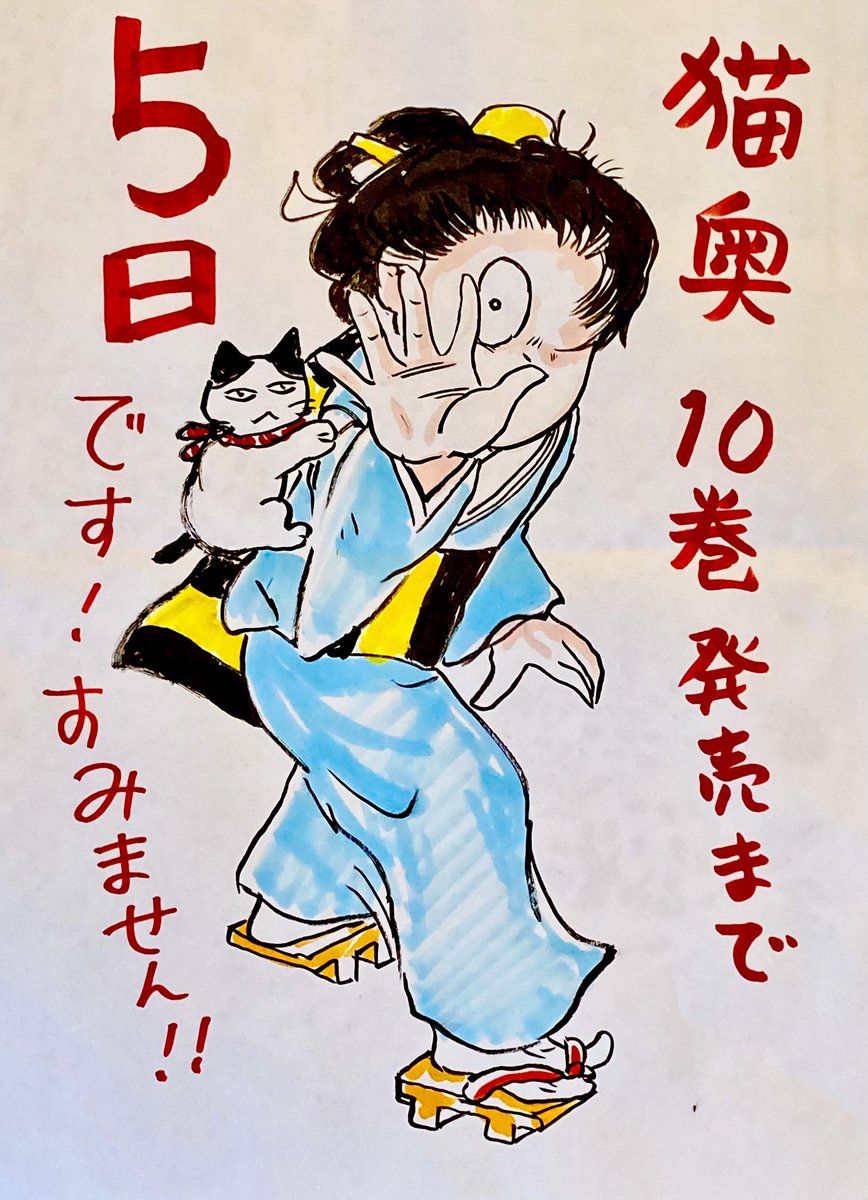 猫奥 10巻 発売まで
5日
です!すみません!!